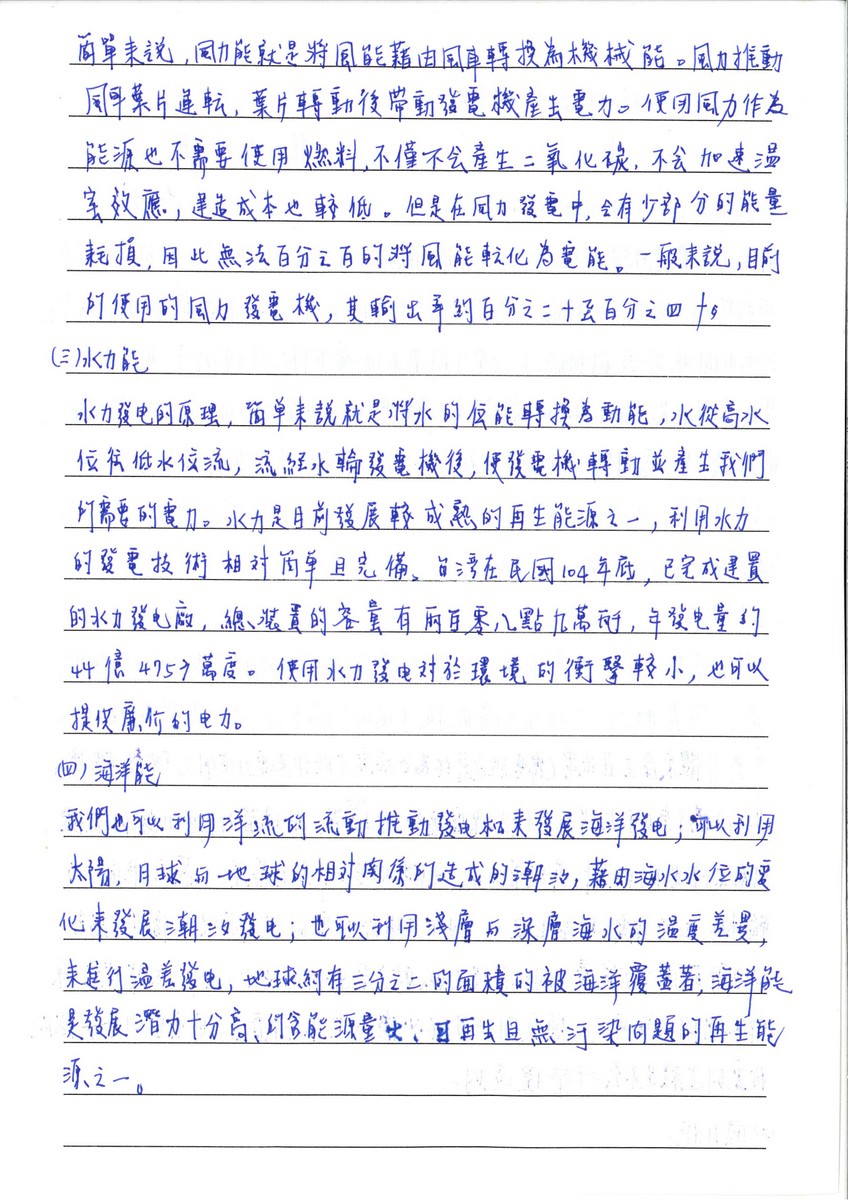 簡單來說,風力能就是將風能藉由風車轉換為機械能。風力推動
風車葉片運転,葉片轉動後帶動發電機產生電力。使用風力作為
能源也不需要使用燃料,不僅不会產生二氧化碳,不会加速温
室效應,建造成本也較低。但是在風力發電中,会有少部分的能量
耗損,因此無法百分之百的將風能転化為電能。一般來說,目前
所使用的風力發電機,其輸出率約百分之二十至百分之四十。
(三)水力能
水力發电的原理,簡单來說就是將水的位能轉換為動能,水從高水
位往低水位流,流經水輪發電機後,使發電機轉動並產生我們
所需要的電力。水力是目前發展較成熟的再生能源之一,利用水力
的發電技術相対簡单且完備。台湾在民國104年底,已完成建置
的水力發电廠,總裝置的容量有兩百零八點九萬瓩,年發电量約
44億 4757萬度。使用水力發电对於環境的衝擊較小,也可以
提供廉价的电力。
(四)海洋能
我們也可以利用洋流的流動推動發电机來發展海洋發电;可以利用
太陽、月球与地球的相対関係所造成的潮汐,藉由海水水位的变
化來發展潮汐發电;也可以利用淺層与深層海水的温度差異,
來進行温差發电,地球約有三分之二的面積的被海洋覆蓋著,海洋能
是發展潛力十分高、所含能源量大、可再生且無汚染問題的再生能
源之一。